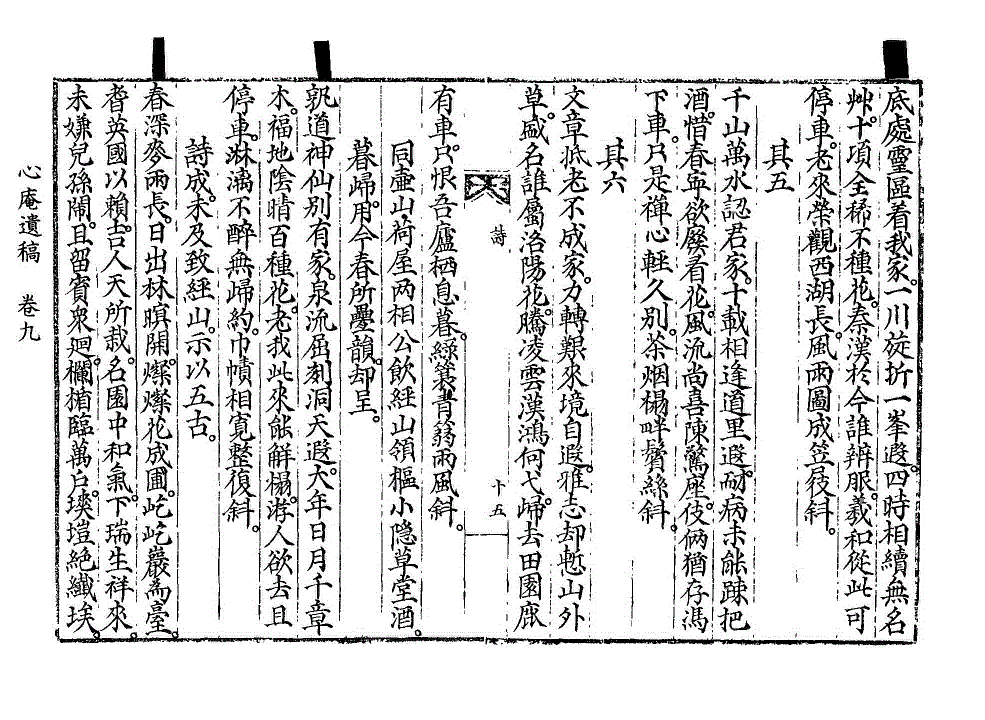 底處靈區着我家。一川旋折一峯遐。四時相續無名
艸。十項全稀不種花。秦漢於今誰辨服。羲和從此可
停車。老來榮觀西湖長。風雨圖成笠屐斜。
其五
千山萬水認君家。十載相逢道里遐。耐病未能踈把
酒。惜春寧欲廢看花。風流尚喜陳驚座。伎倆猶存馮
下車。只是禪心輕久別。茶烟榻畔鬢絲斜。
其六
文章抵老不成家。力轉艱來境自遐。雅志却慙山外
草。盛名誰屬洛陽花。騰凌雲漢鴻何弋。歸去田園鹿
詩
十五
有車。只恨吾廬栖息暮。綠簑靑篛雨風斜。
同壷山荷屋两相公飮經山領樞小隐草堂酒。
暮歸。用今春所疊韻。却呈。
孰道神仙别有家。泉流屈刻洞天遐。大年日月千章
木。福地陰晴百種花。老我此來能解榻。游人欲去且
停車。淋漓不醉無歸約。巾幘相寬整復斜。
詩成。未及致經山。示以五古。
春深麥雨長。日出林暝開。燦燦花成圃。屹屹巖爲臺。
耆英國以賴。吉人天所栽。名園中和氣。下瑞生祥來。
未嫌兒孫鬧。且留賓衆廻。欄楯臨萬戶。堁塏絶纖埃。
心庵遺稿 卷九